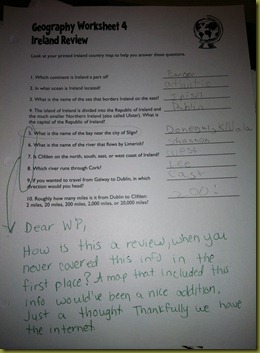 Geography Worksheet 4
Ireland Review
Look at your printed Ireland country map to help you answer these questions.
1. Which continent is Ireland a part of? Europe
2. In what ocean is Ireland located? Atlantic
3. What is the name of the sea that borders Ireland on the east? Irish
4. The island of Ireland is divided into the Republic of Ireland and
the much smaller Northern Ireland (also called Ulster). What is
the capital of the Republic of Ireland? Dublin
5. What is the name of the bay near the city of Sligo? Donegal,
6. What is the name of the river that flows by Limerick? Shannon
7. Is Clifden on the north, south, east, or west coast of Ireland? West
8. Which river runs through Cork? Lee
9. If you wanted to travel from Galway to Dublin, in which
direction would you head? East
10. Roughly how many miles is it from Dublin to Clifden:
2 miles, 20 miles, 200 miles, 2,000 miles, or 20,000 miles? 200
Dear WP,
How is this a review, when you
never covered this info in the
first place? A map that included this
info would've been a nice addition.
Just a thought Thankfully we have
the internet